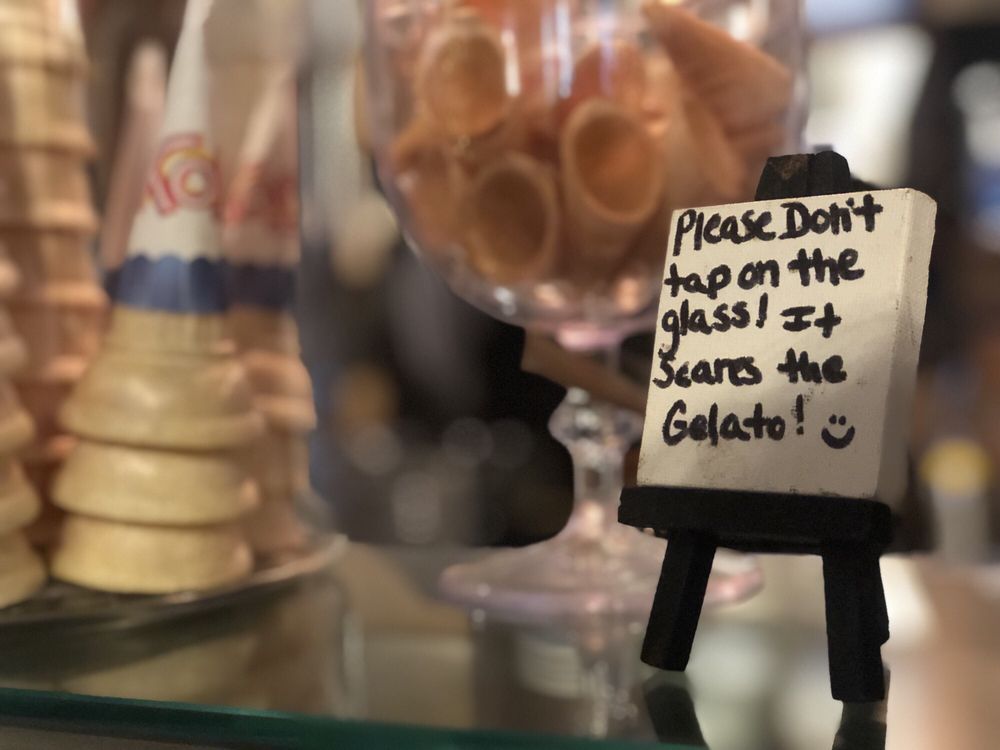 Please Don't
tap on the
glass! It
Scares the
Gelato!